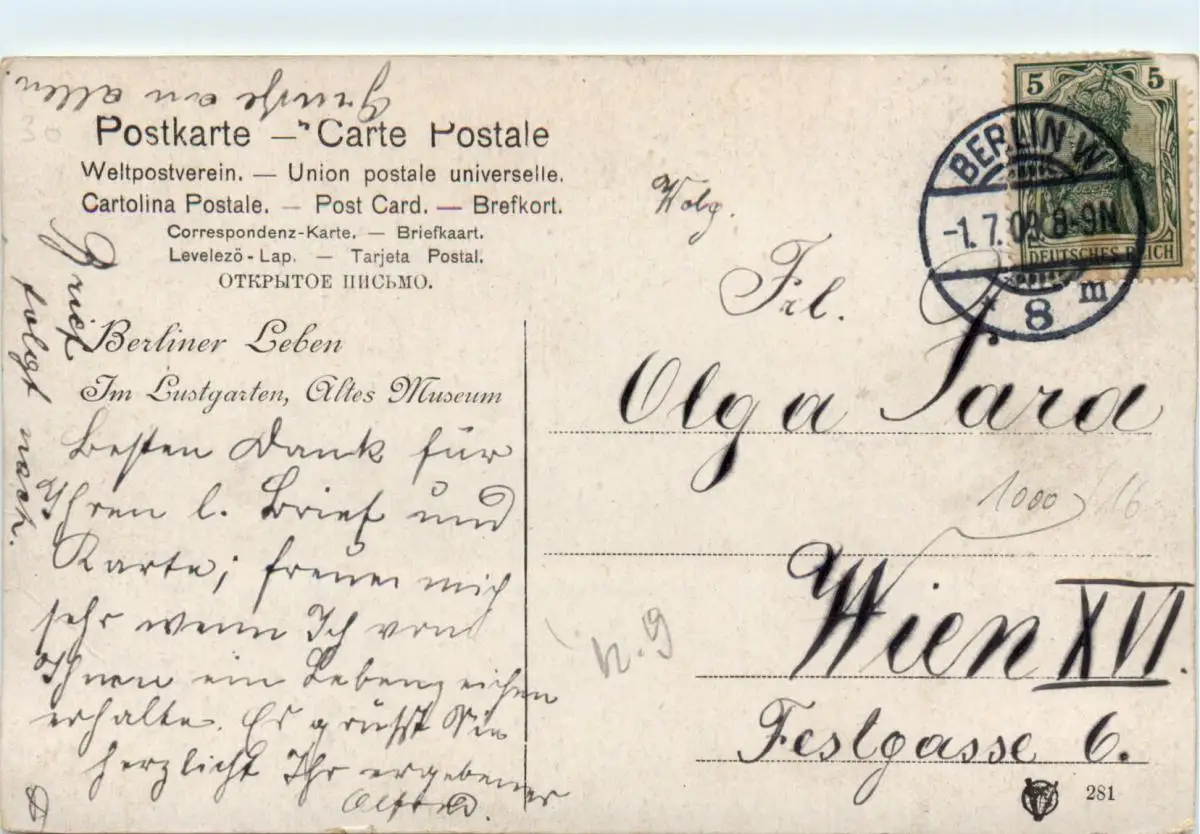 Grüße an allen
Postkarte — Carte Postale
Weltpostverein. — Union postale universelle.
Cartolina Postale. — Post Card. — Brefkort.
Correspondenz-Karte. — Briefkaart.
Levelezö-Lap. — Tarjeta Postal.
ОТКРЫТОЕ ПИСЬМО.
Berliner Leben
Im Lustgarten, Altes Museum
Besten Dank für
Ihren l. Brief und
Karte; freue mich
sehr wenn Ich von
Ihnen ein Lebenzeichen
erhalte. Es grüsst Sie
herzlicht Ihr ergebener
Alfred.
Brief
folgt nach.
5 5
DEUTSCHES REICH
BERLIN W
-1.7.09 8-9N
8 m
Wolg.
Frl.
Olga Para
1000 / 16
Wien XVI.
N. 9
Festgasse 6.
281